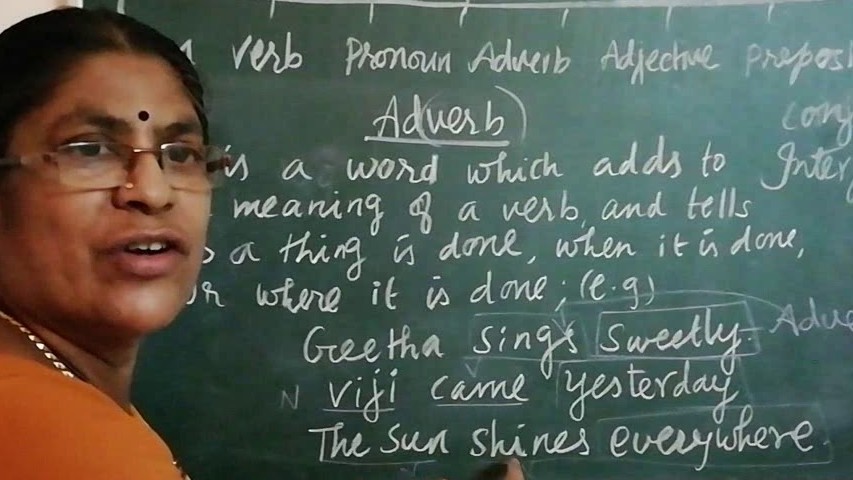 verb Pronoun Adverb Adjective preposi
Adverb
conj
is a word which adds to
Inter
meaning of a verb, and tells
a thing is done, when it is done,
or where it is done; (e.g)
Geetha sings sweetly. Adve
N Viji came yesterday
The Sun shines everywhere.